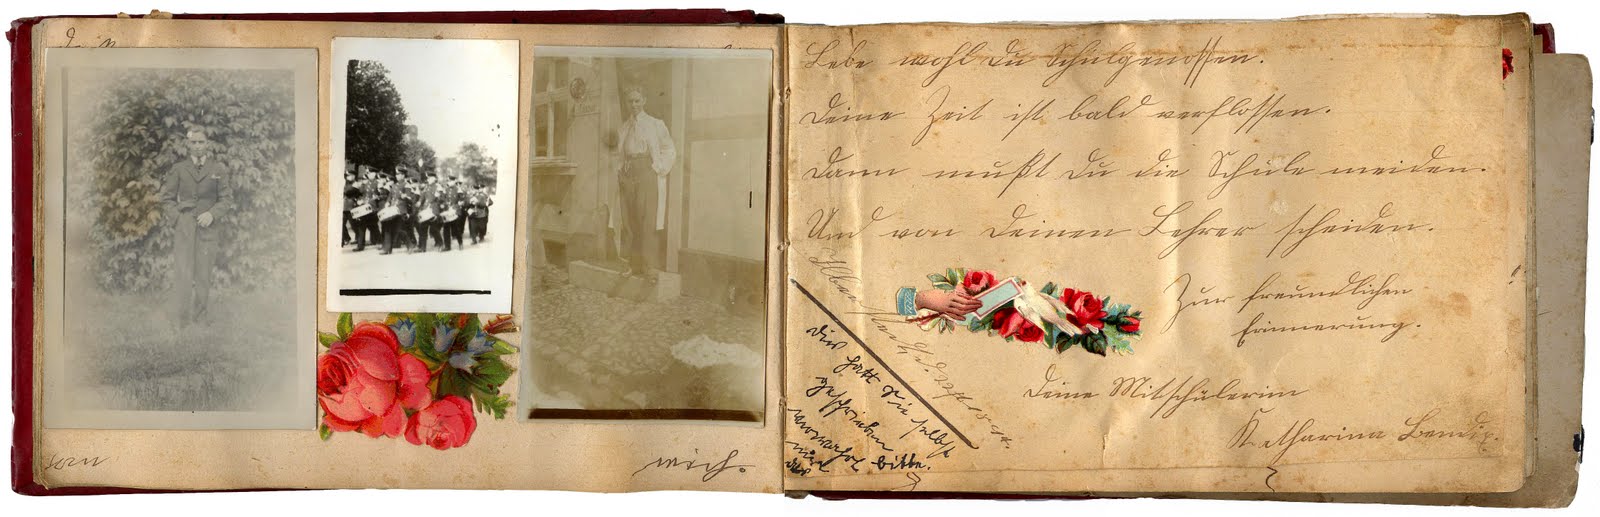 von
mich.
Lebe wohl du Schulgenossen.
Deine Zeit ist bald verflossen.
Dann mußt Du die Schule meiden.
Und von Deinen Lehrer scheiden.
Zur freundlichen
Erinnerung.
Deine Mitschülerin
Katharina Bendix.
Die hatt Sie selbst
geschrieben
verwahrt bitte.
mir